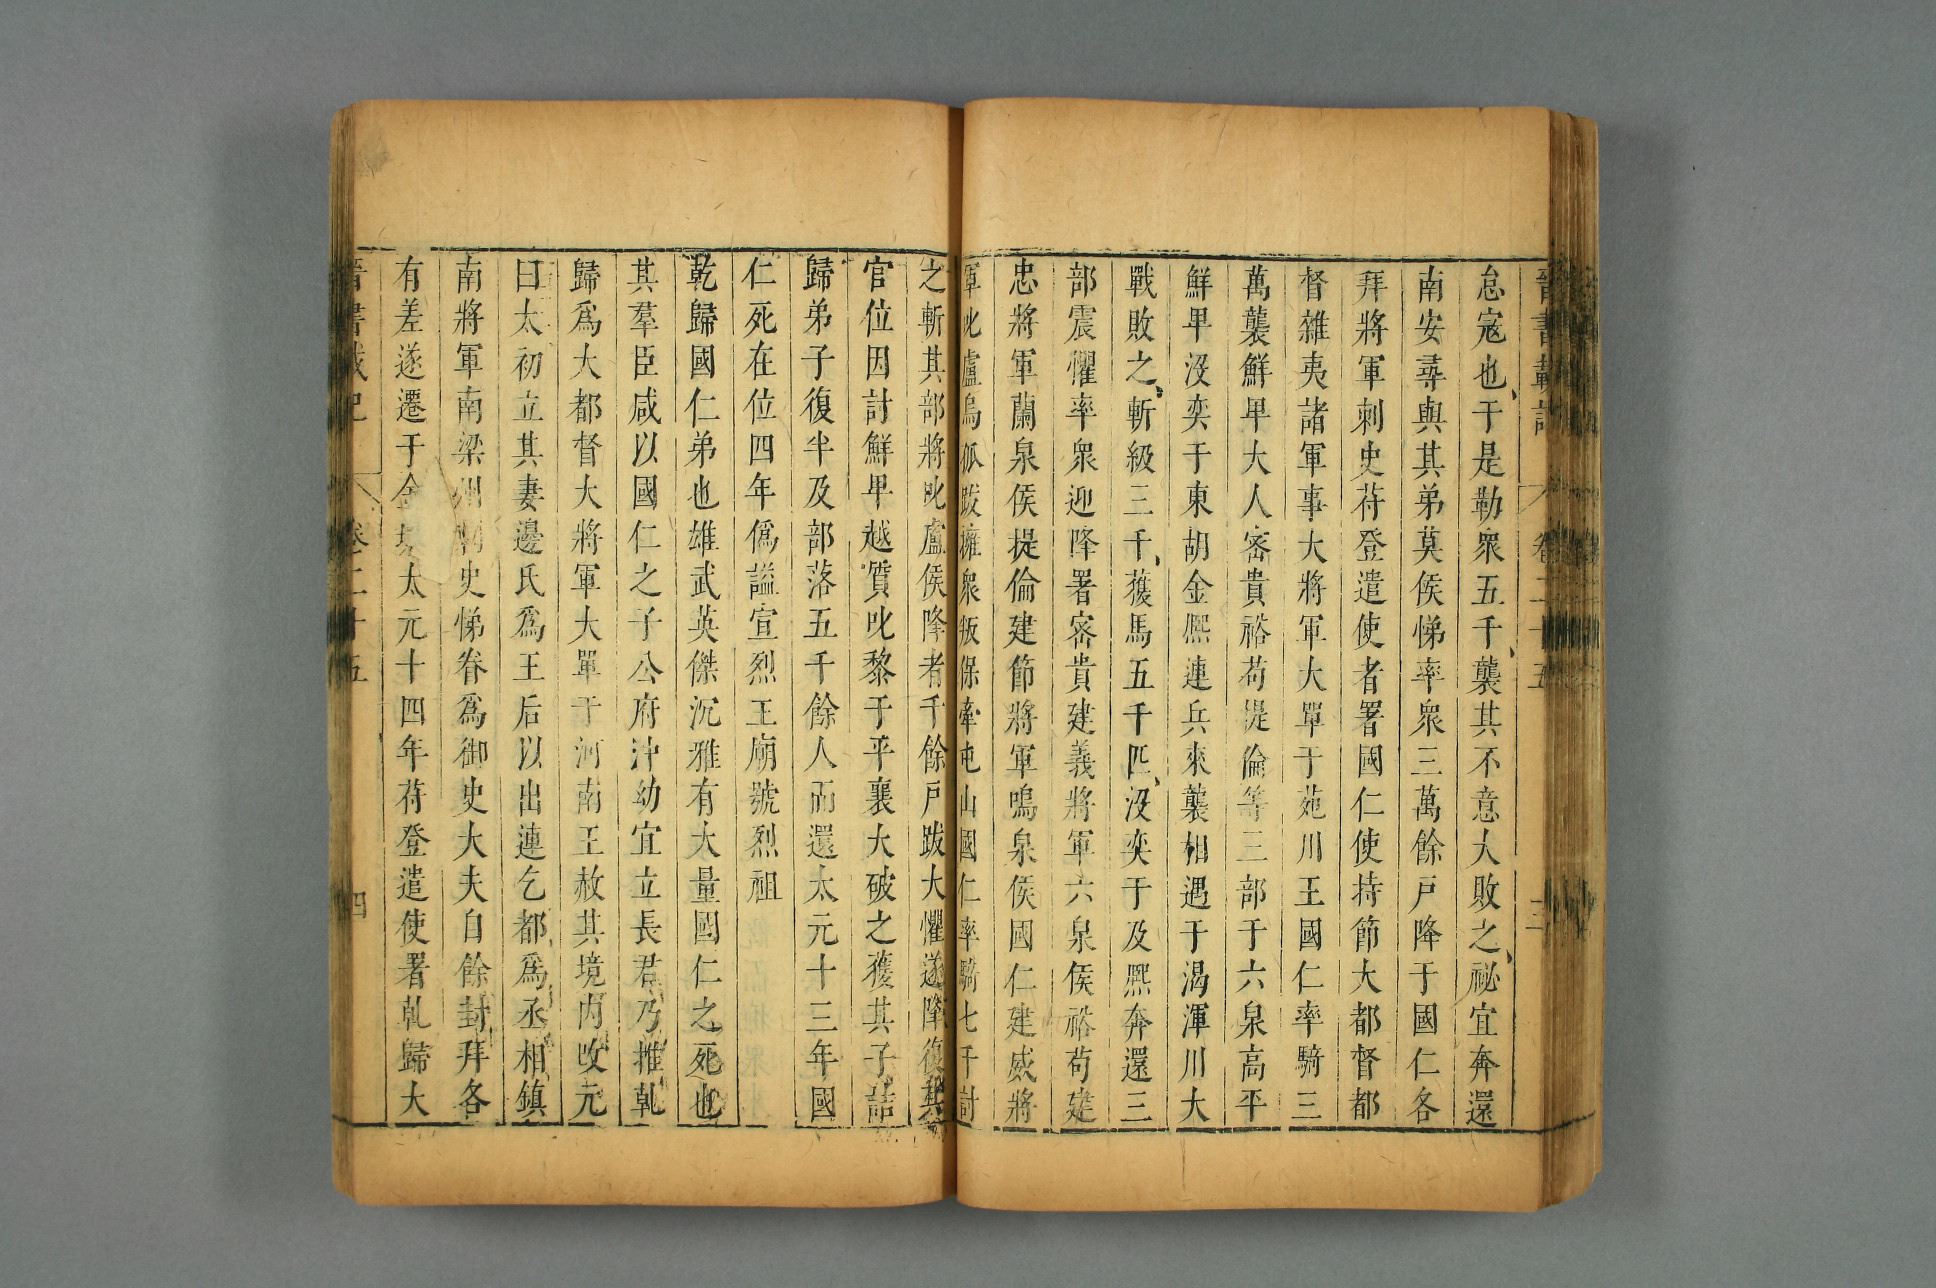 晉書載記 卷二十五 三
怠寇也于是勒衆五千襲其不意大敗之祕宜奔還
南安尋與其弟莫侯悌率衆三萬餘戶降于國仁各
拜將軍刺史苻登遣使者署國仁使持節大都督都
督雜夷諸軍事大將軍大單于苑川王國仁率騎三
萬襲鮮卑大人密貴裕苟提倫等三部于六泉高平
鮮卑没奕于東胡金熙連兵來襲相遇于渴渾川大
戰敗之斬級三千獲馬五千匹没奕于及熙奔還三
部震懼率衆迎降署密貴建義將軍六泉侯裕苟建
忠將軍蘭泉侯提倫建節將軍鳴泉侯國仁建威將
軍叱盧烏孤跋擁衆叛保牽屯山國仁率騎七千討
之斬其部將叱盧侯降者千餘戶跋大懼遂降復其
官位因討鮮卑越質叱黎于平襄大破之獲其子詰
歸弟子復半及部落五千餘人而還太元十三年國
仁死在位四年僞謚宣烈王廟號烈祖
乾歸國仁弟也雄武英傑沉雅有大量國仁之死也
其羣臣咸以國仁之子公府沖幼宜立長君乃推乾
歸爲大都督大將軍大單于河南王赦其境内改元
曰太初立其妻邊氏爲王后以出連乞都爲丞相鎮
南將軍南梁州刺史悌眷爲御史大夫自餘封拜各
有差遂遷于金城太元十四年苻登遣使署乾歸大
晉書載記 卷二十五 四